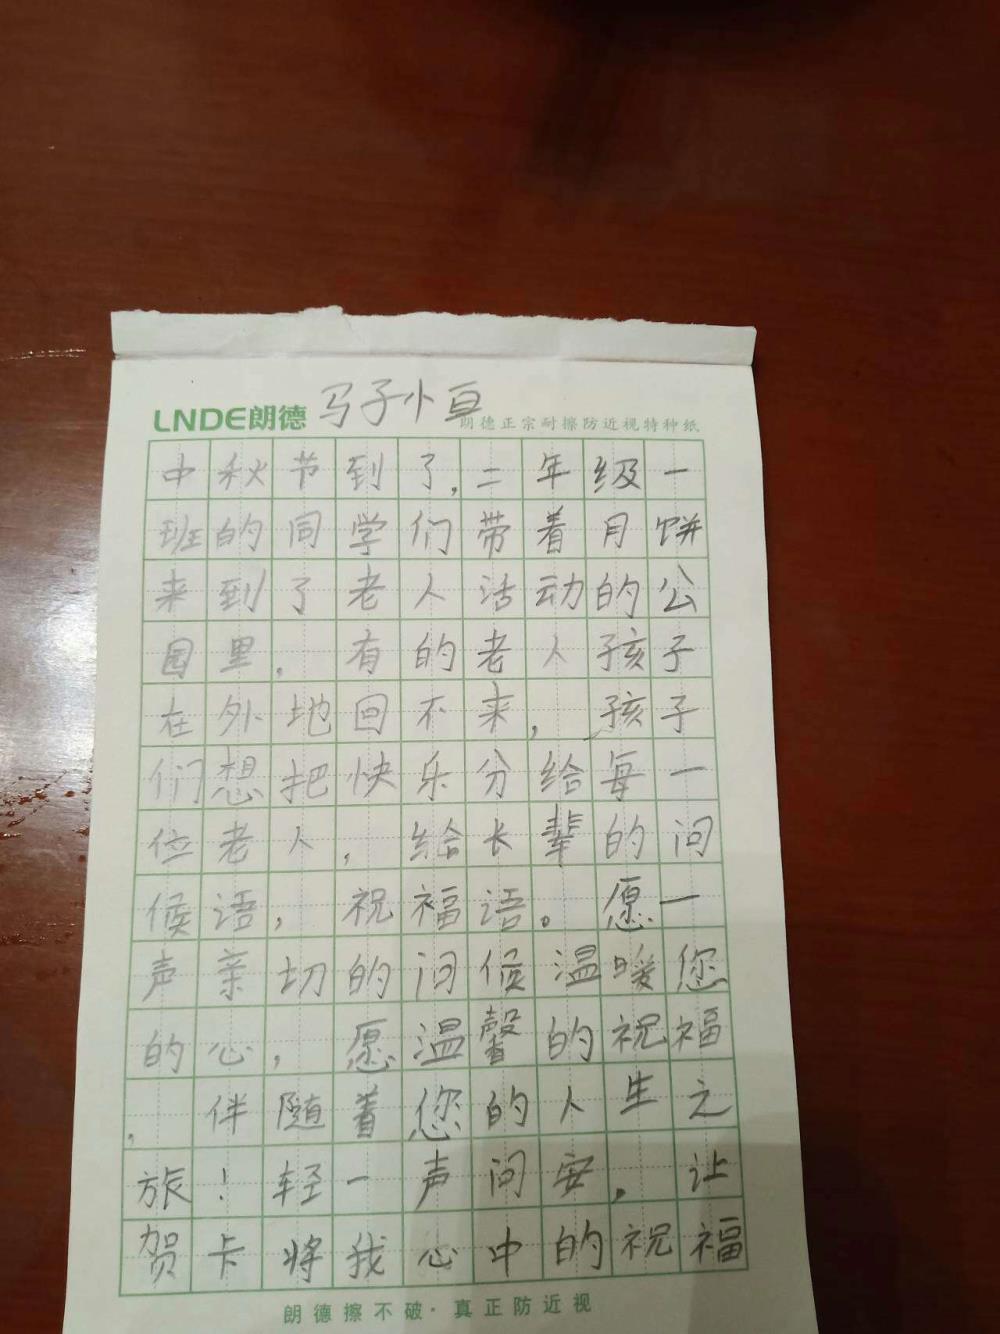 LNDE朗德 马子小豆
朗德正宗耐擦防近视特种纸
中秋节到了,二年级一
班的同学们带着月饼
来到了老人活动的公
园里。有的老人孩子
在外地回不来,孩子
们想把快乐分给每一
位老人,给长辈的问
候语,祝福语。愿一
声亲切的问候温暖您
的心,愿温馨的祝福
,伴随着您的人生之
旅!轻一声问安,让
贺卡将我心中的祝福
朗德擦不破·真正防近视